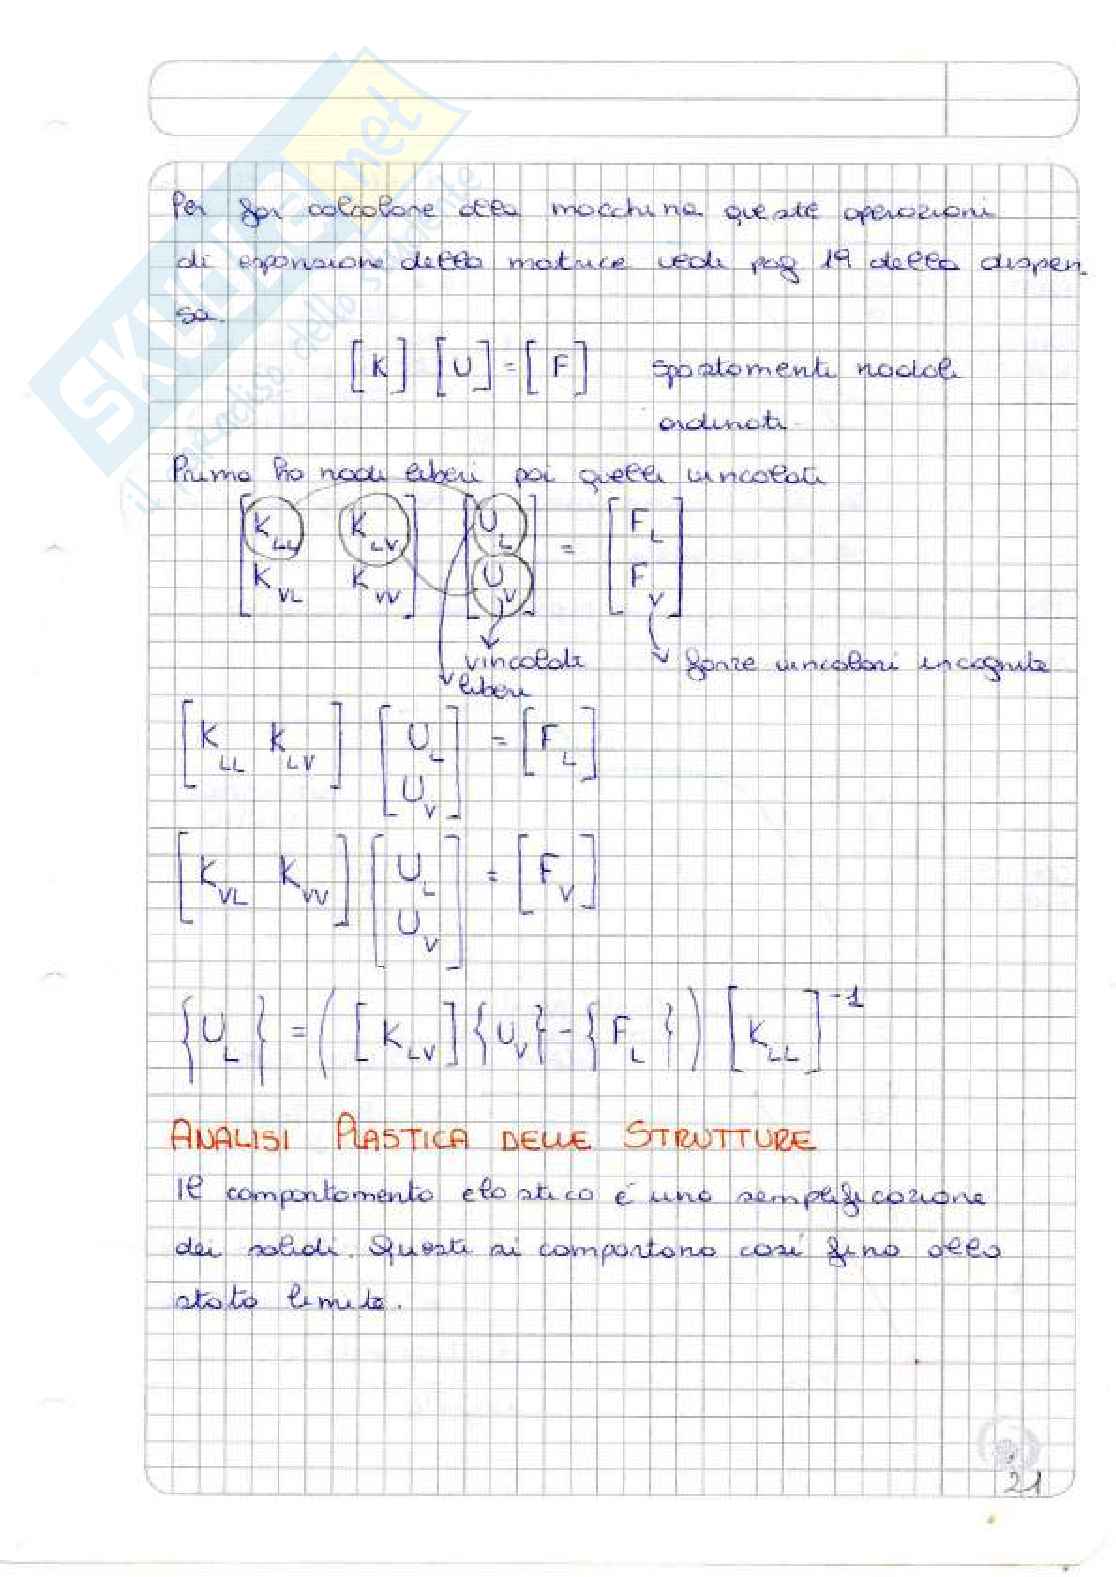 SKUOLA.net
il paradiso dello studente
Per far calcolare alla macchina queste operazioni
di espansione della matrice vedi pag 19 della dispen-
sa.
[K] [U] = [F] spostamenti nodali
ordinati.
Prima ho nodi liberi poi quelli vincolati
[K_LL K_LV] [U_L] = [F_L]
[K_VL K_VV] [U_V] [F_V]
vincolati forze vincolari incognite
liberi
[K_LL K_LV] [U_L U_V] = [F_L]
[K_VL K_VV] [U_L U_V] = [F_V]
{U_L} = ([K_LV]{U_V} - {F_L}) [K_LL]^-1
ANALISI PLASTICA DELLE STRUTTURE
Il comportamento elastico é una semplificazione
dei solidi. Questi si comportano così fino allo
stato limite.
21